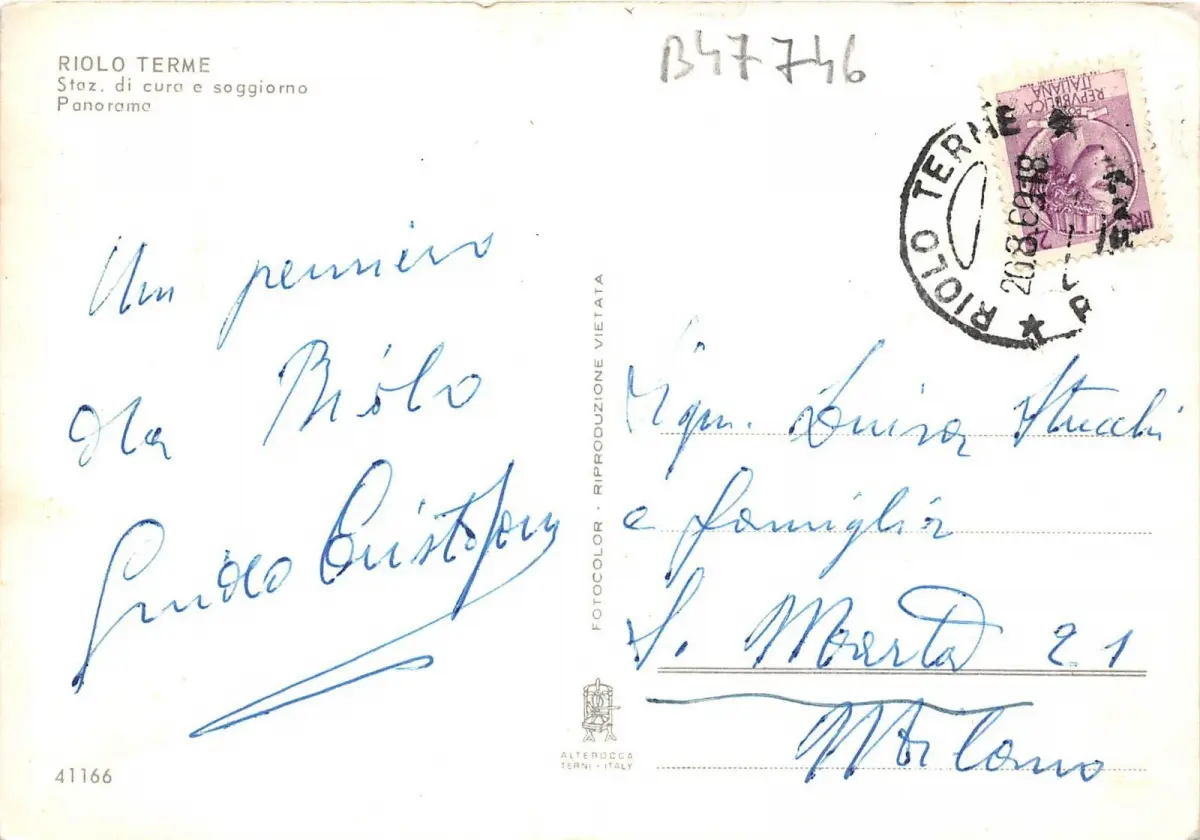 RIOLO TERME
Staz. di cura e soggiorno
Panorama
B47746
REPVBBLICA
ITALIANA
RIOLO TERME
20.8.60.18
Un pensiero
da Riolo
Guido Cristofori
FOTOCOLOR - RIPRODUZIONE VIETATA
Sign. Luisa Stucchi
e famiglia
S. Marta 21
Milano
ALTEROCCA
TERNI - ITALY
41166